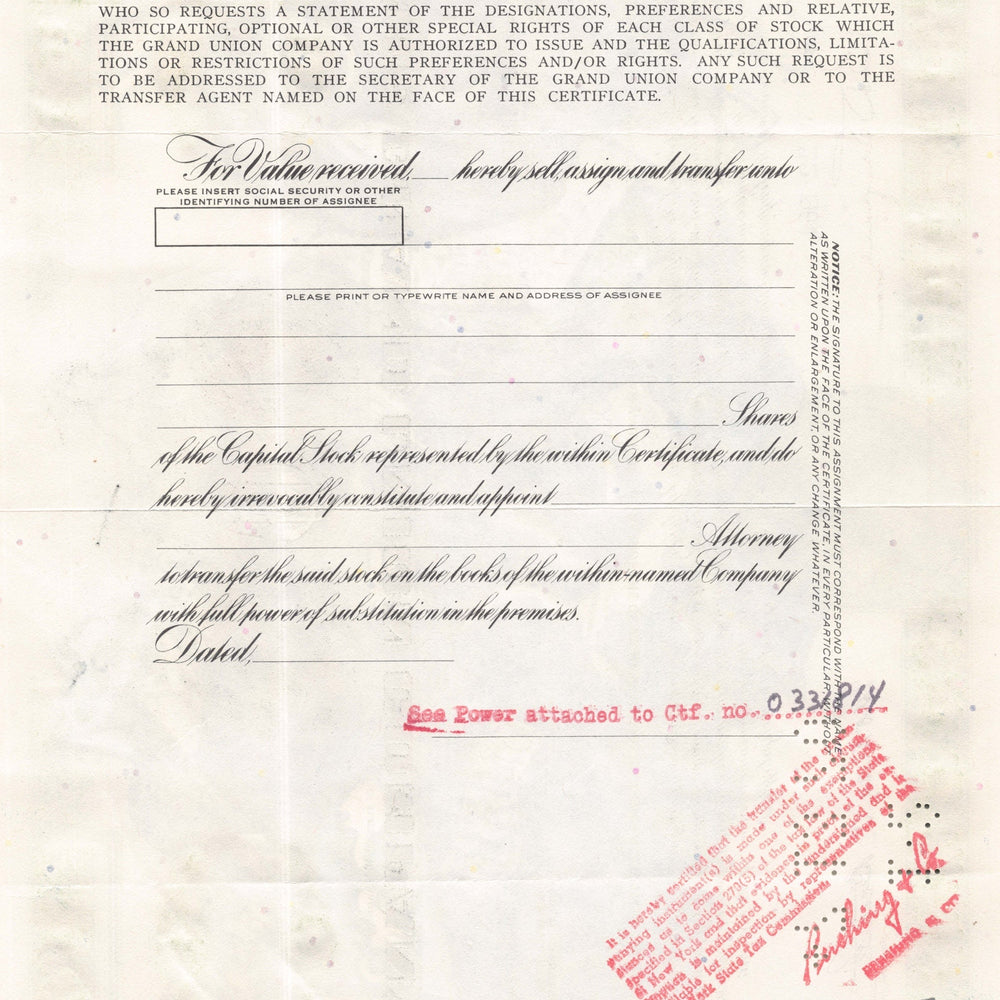 WHO SO REQUESTS A STATEMENT OF THE DESIGNATIONS, PREFERENCES AND RELATIVE,
PARTICIPATING, OPTIONAL OR OTHER SPECIAL RIGHTS OF EACH CLASS OF STOCK WHICH
THE GRAND UNION COMPANY IS AUTHORIZED TO ISSUE AND THE QUALIFICATIONS, LIMITA-
TIONS OR RESTRICTIONS OF SUCH PREFERENCES AND/OR RIGHTS. ANY SUCH REQUEST IS
TO BE ADDRESSED TO THE SECRETARY OF THE GRAND UNION COMPANY OR TO THE
TRANSFER AGENT NAMED ON THE FACE OF THIS CERTIFICATE.
For Value received, hereby sell, assign and transfer unto
PLEASE INSERT SOCIAL SECURITY OR OTHER
IDENTIFYING NUMBER OF ASSIGNEE
PLEASE PRINT OR TYPEWRITE NAME AND ADDRESS OF ASSIGNEE
Shares
of the Capital Stock represented by the within Certificate, and do
hereby irrevocably constitute and appoint
Attorney
to transfer the said stock on the books of the within-named Company
with full power of substitution in the premises.
Dated,
NOTICE: THE SIGNATURE TO THIS ASSIGNMENT MUST CORRESPOND WITH THE NAME
AS WRITTEN UPON THE FACE OF THE CERTIFICATE, IN EVERY PARTICULAR, WITHOUT
ALTERATION OR ENLARGEMENT, OR ANY CHANGE WHATEVER.
See Power attached to Ctf. no. 0331814
It is hereby certified that the transfer of the
instrument(s) is made under such
as to come within one of the exemptions
specified in Section 270(5) of the tax law of the State
of New York and that evidence in proof of the
is maintained by the undersigned and is
for inspection by representatives of the
State Tax Commission.
Pershing & Co.